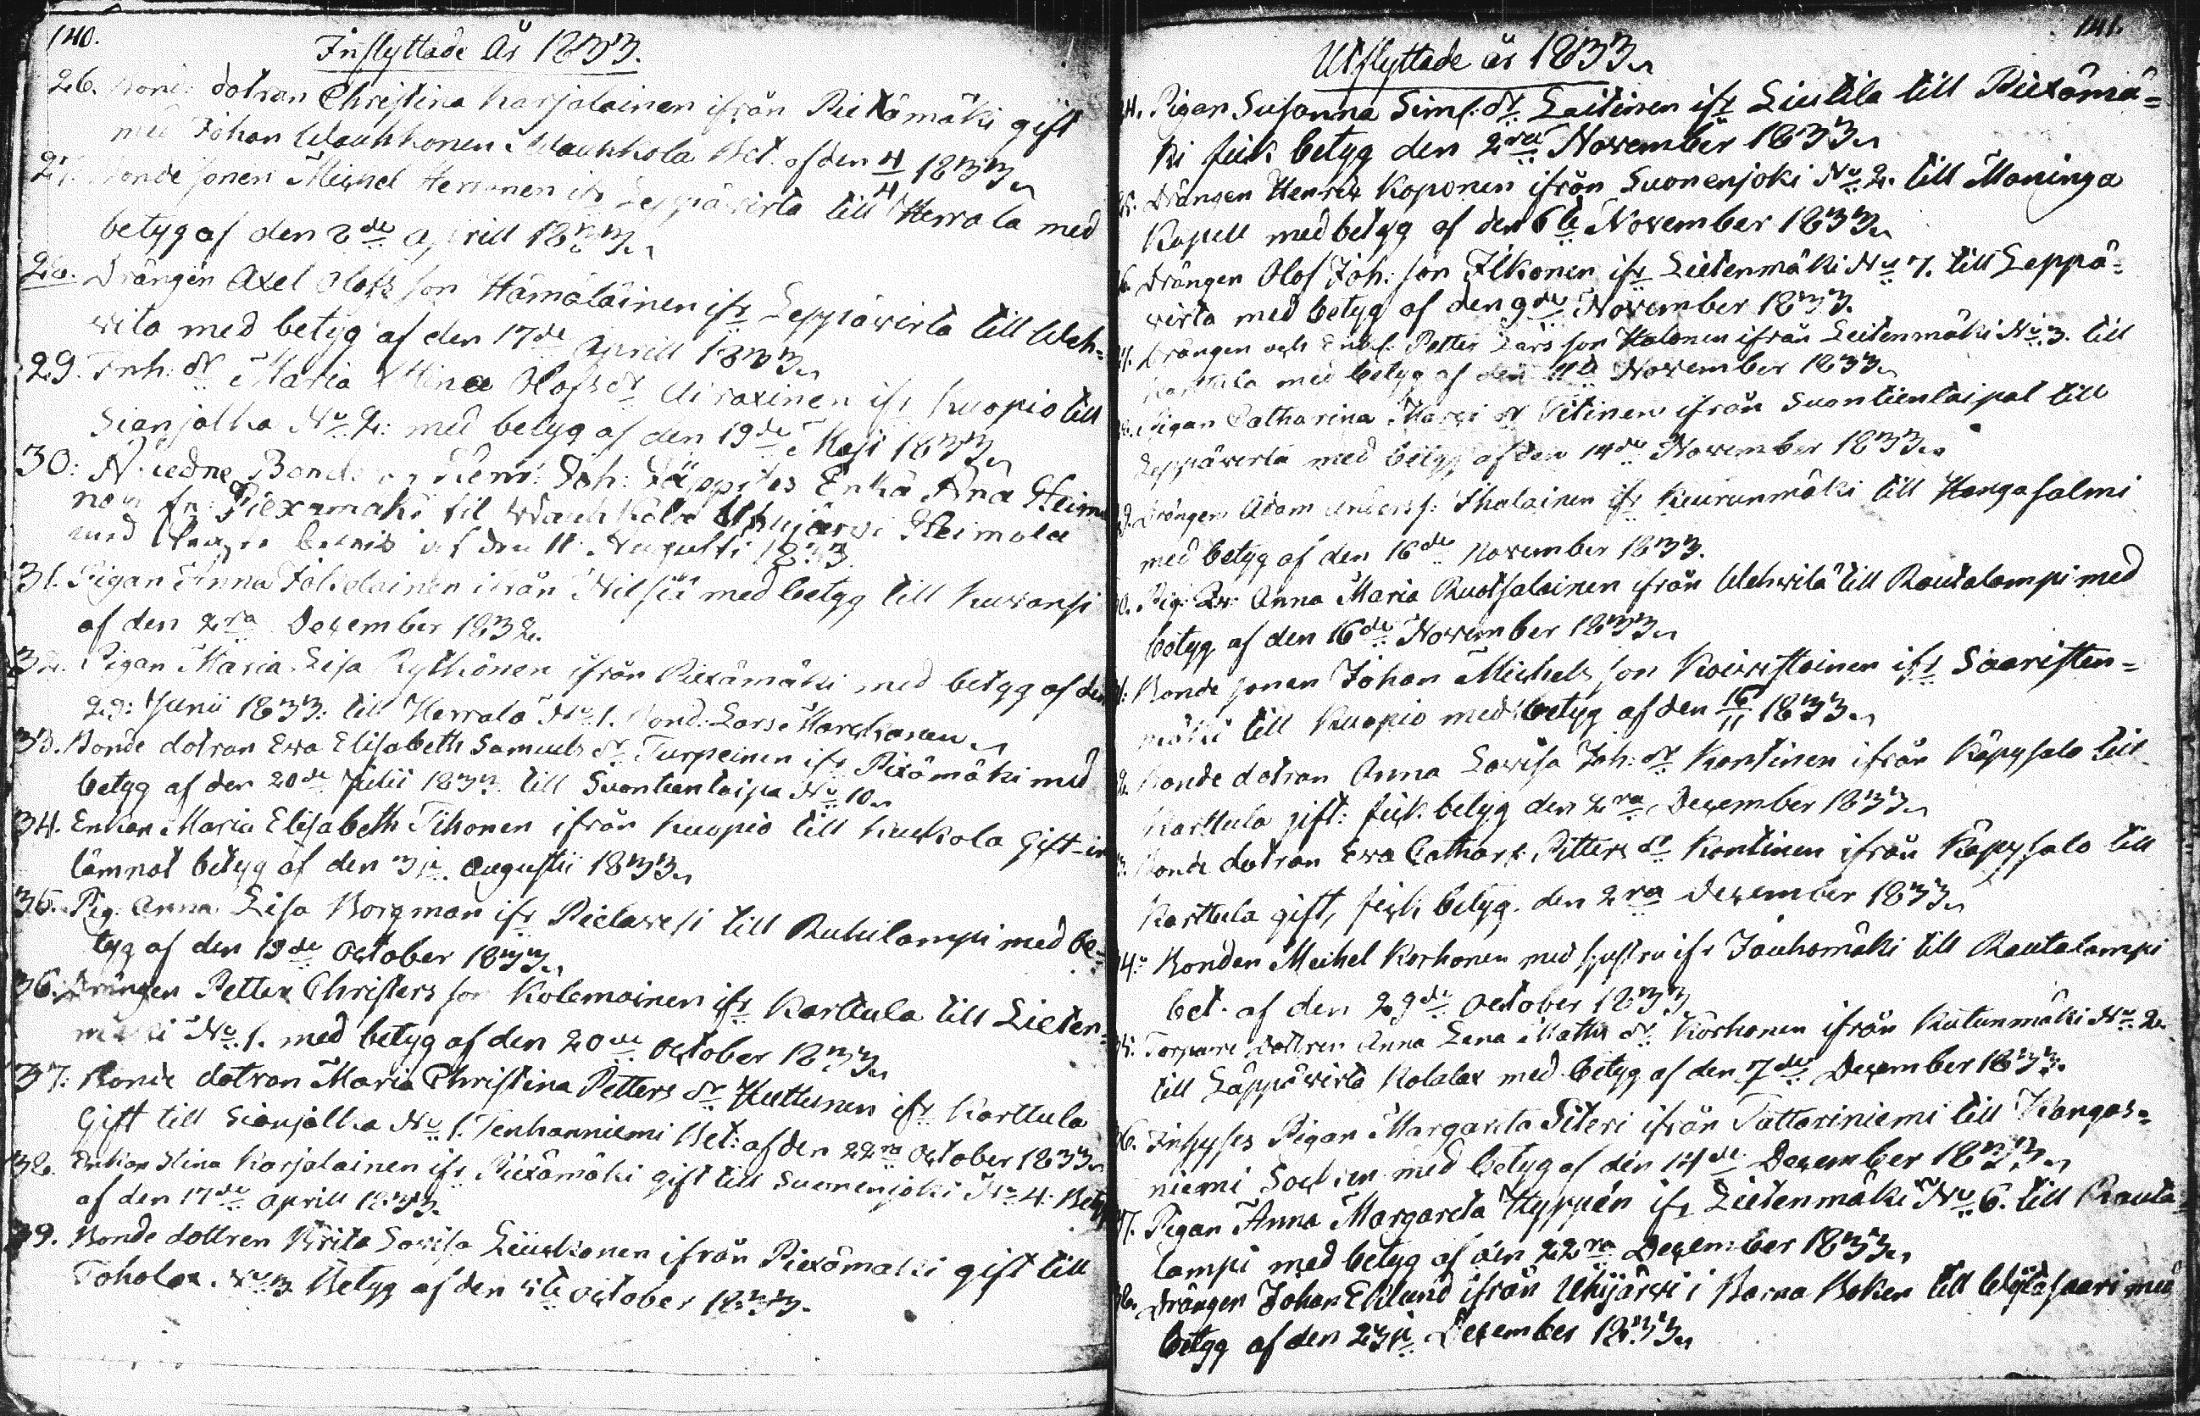 140.
Inflyttade År 1833.
26. Bonde dotran Christina Karjalainen ifrån Pieksämäki gift
med Johan Wauhkonen Wauhkola Bet. af den 4/4 1833
27. Bonde sonen Michel Herranen ifr Leppävirta till Herrala med
betyg af den 2de Aprill 1833
28. Drängen Axel Olofs son Hämäläinen ifr Leppävirta till Weh=
wilä med betyg af den 17de Aprill 1833
29. Inh: dr Maria Stina Olofs dr Airaxinen ifr Kuopio till
Sianjalka No 2: med betyg af den 19de Maji 1833
30: Bonde Joh: Enka Ana Heimo
nen fr: Piexamäki til Wauhkola Uhujärvi Heimola
med betyg af den 11 Augusti 1833
31. Pigan Anna ifrån Nilsiä med betyg till Kuvansi
af den 2ra December 1832.
32. Pigan Maria Lisa Rythönen ifrån Piexämäki med betyg af den
29: Junii 1833: till Herrala No 1. Bond. Lars Markkanen
33. Bonde dotran Ewa Elisabeth Samuels dr Turpeinen ifr Pixämäki med
betyg af den 20de Julii 1833 till Suontientaipa No 10
34. Enkan Maria Elisabeth Tihonen ifrån Kuopio till Kukkola Gift-
lämnat betyg af den 3je Augustii 1833
35. Pig. Anna Lisa Borgman ifr Pielavesi till Rukilampi med be=
tyg af den 19de October 1833
36. Drängen Petter Christers son Kolemainen ifr Karttula till Lieten=
mäki No 1. med betyg af den 20de October 1833
37: Bonde dotran Maria Christina Petters dr Huttunen ifr Karttula
Gift till Sianjalka No 1. Tenhanniemi Bet: af den 22ra October 1833
38. Enkan Stina Karjalainen ifr Piexämäki gift till Suonenjoki No 4. Bet
af den 17de Aprill 1833.
39. Bonde dottren Brita Lovisa Liukkonen ifrån Piexämäki gift till
Toholax No 3 Betyg af den 5te October 1833.
141.
Utflyttade år 1833
24. Pigan Susanna Sims: dr Laitinen ifr Liutila till Piexämä=
ki fick betyg den 2ra November 1833
25. Drängen Henrik Koponen ifrån Suonenjoki No 2. till Maninga
Kapell med betyg af den 6te November 1833
26. Drängen Olof Joh: son Ilkonen ifr Lietenmäki No 7. till Leppä=
virta med betyg af den 9de November 1833.
27. Drängen och Petter Lars son Halonen ifrån Leitenmäki No 3. till
Karttula med betyg af den November 1833
28. Pigan Catharina dr Vitinen ifrån Suontientaipal till
Leppävirta med betyg af den 14de November 1833
29. Drängen Adam Anders s. Ihalainen ifr Kuurunmäki till Hangasalmi
med betyg af den 16de November 1833.
30. Pig: Anna Maria Ruotsalainen ifrån Wehvilä till Rautalampi med
betyg af den 16de November 1833
31: Bonde sonen Johan Michels son Koivistoinen ifr Saaristen=
mäki till Kuopio med betyg af den 16/11 1833
32. Bonde dotran Anna Lovisa Joh: dr Kontinen ifrån Käpysalo till
Karttula gift: fick betyg den 2ra December 1833
33. Bonde dotran Ewa Cathar: Petters dr Kontinen ifrån Käpysalo till
Karttula gift, fick betyg den 2ra December 1833
34: Bonden Meihel Korhonen med hustru ifr Jauhomäki till Rautalampi
bet. af den 29de October 1833
35. Torpare dottren Anna Lena Matts dr Korhonen ifrån Kutunmäki No 2
till Läppävirta Kolalax med betyg af den 7de December 1833.
36. Inhyses Pigan Margareta Siteri ifrån Tattariniemi till Kangas=
niemi Socken med betyg af den 14de December 1833
37. Pigan Anna Margareta Hyppén ifr Lietenmäki No 6. till Rauta=
lampi med betyg af den 22ra December 1833
38. Drängen Johan Eklund ifrån Uhijärvi i Barna Boken till Witasaari med
betyg af den 23je December 1833